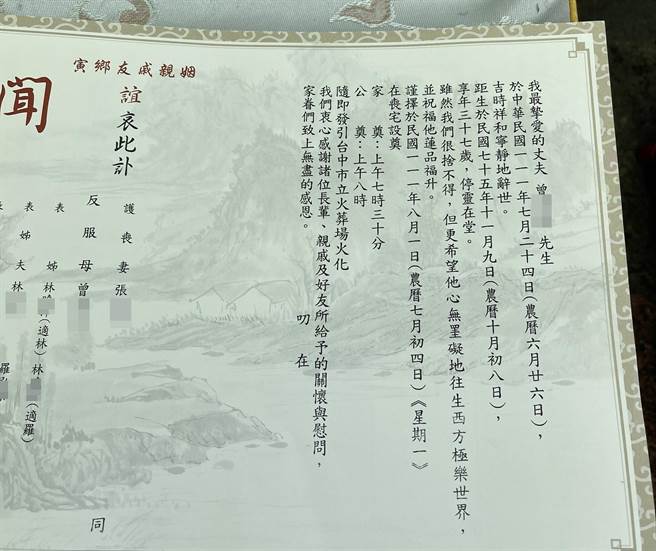 我最摯愛的丈夫 曾 先生
於中華民國一一一年七月二十四日(農曆六月廿六日)，
吉時祥和寧靜地辭世。
距生於民國七十五年十一月九日(農曆十月初八日)，
享年三十七歲，停靈在堂。
雖然我們很捨不得，但更希望他心無罣礙地往生西方極樂世界，
並祝福他蓮品福升。
謹擇於民國一一一年八月一日(農曆七月初四日)《星期一》
在喪宅設奠
家 奠：上午七時三十分
公 奠：上午八時
隨即發引台中市立火葬場火化
我們衷心感謝諸位長輩、親戚及好友所給予的關懷與慰問，
家眷們致上無盡的感恩。
叨在
姻親戚友鄉寅
誼 哀此訃
聞
護喪妻 張
反服母 曾
表姊 林 (適林)
表姊夫 林
林 (適羅)
羅
同